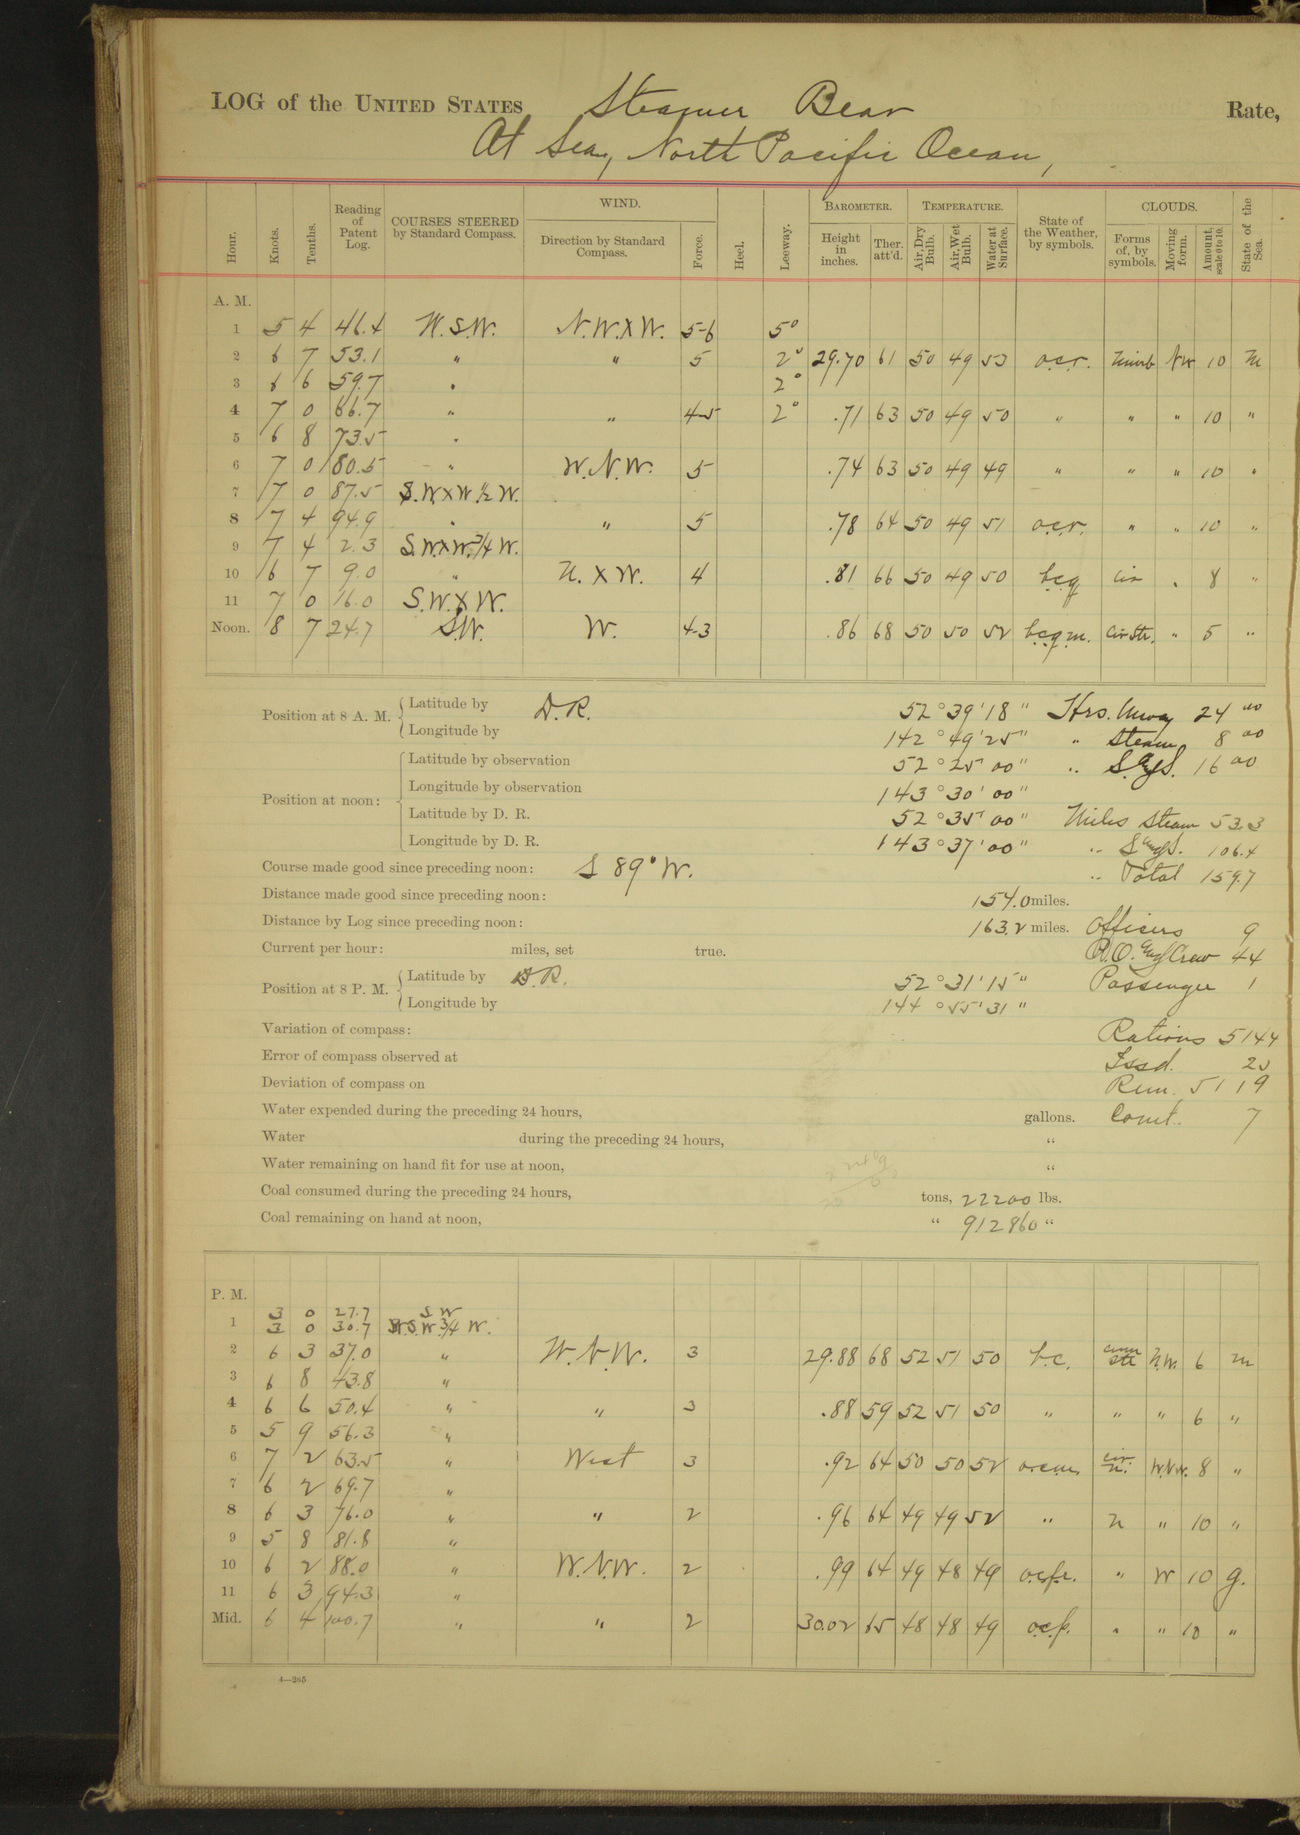 LOG of the UNITED STATES Steamer Bear Rate,
At Sea, North Pacific Ocean,
Hour. Knots. Tenths. Reading of Patent Log. COURSES STEERED by Standard Compass. WIND. Direction by Standard Compass. Force. Heel. Leeway. BAROMETER. Height in inches. Ther. att'd. TEMPERATURE. Air, Dry Bulb. Air, Wet Bulb. Water at Surface. State of the Weather, by symbols. CLOUDS. Forms of, by symbols. Moving form. Amount, scale 0 to 10. State of the Sea.
A. M.
1 5 4 46.4 W.S.W. N.W.XW. 5-6 5°
2 6 7 53.1 " " 5 2° 29.70 61 50 49 53 o.c.r. nimb NW 10 M
3 6 6 59.7 " 2°
4 7 0 66.7 " " 4-5 2° .71 63 50 49 50 " " " 10 "
5 6 8 73.5 "
6 7 0 80.5 " W.N.W. 5 .74 63 50 49 49 " " " 10 "
7 7 0 87.5 S.W.XW.½ W.
8 7 4 94.9 " " 5 .78 64 50 49 51 o.c.r. " " 10 "
9 7 4 2.3 S.W.XW.¾ W.
10 6 7 9.0 " N. X W. 4 .81 66 50 49 50 b.c.q cir " 8 "
11 7 0 16.0 S.W.X W.
Noon. 8 7 24.7 S.W. W. 4-3 .86 68 50 50 52 b.c.q.m. Cir Str. " 5 "
Position at 8 A. M. Latitude by D.R. 52° 39' 18" Hrs. Unway 24 00
Longitude by 142° 49' 25" " Steam 8 00
Position at noon: Latitude by observation 52° 25' 00" " S. and S. 16 00
Longitude by observation 143° 30' 00"
Latitude by D. R. 52° 35' 00" Miles Steam 53.3
Longitude by D. R. 143° 37' 00" " S and S. 106.4
Course made good since preceding noon: S 89° W. " Total 159.7
Distance made good since preceding noon: 154.0 miles.
Distance by Log since preceding noon: 163.2 miles. Officers 9
Current per hour: miles, set true. P.O. and Crew 44
Position at 8 P. M. Latitude by D.R. 52° 31' 15" Passenger 1
Longitude by 144° 55' 31"
Variation of compass: Rations 5144
Error of compass observed at Issd. 25
Deviation of compass on Rem. 5119
Water expended during the preceding 24 hours, gallons. Comt. 7
Water during the preceding 24 hours, "
Water remaining on hand fit for use at noon, "
Coal consumed during the preceding 24 hours, tons, 22200 lbs.
Coal remaining on hand at noon, " 912860 "
P. M.
3 0 27.7 S W
1 3 0 30.7 W.S.W ¾ W.
2 6 3 37.0 " W.N.W. 3 29.88 68 52 51 50 b.c. cum str N.W. 6 m
3 6 8 43.8 "
4 6 6 50.4 " " 3 .88 59 52 51 50 " " " 6 "
5 5 9 56.3 "
6 7 2 63.5 " West 3 .92 64 50 50 52 o.c.m. cir. n. W.N.W. 8 "
7 6 2 69.7 "
8 6 3 76.0 " " 2 .96 64 49 49 52 " n " 10 "
9 5 8 81.8 "
10 6 2 88.0 " W.N.W. 2 .99 64 49 48 49 " W 10 g.
11 6 3 94.3 "
Mid. 6 4 100.7 " " 2 30.02 65 48 48 49 o.c.p. " " 10 "
4—265